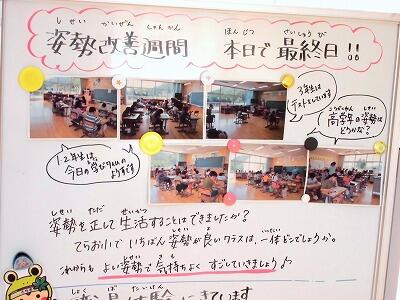 しせいかいぜんしゅうかん ほんじつ さいしゅうび
姿勢改善週間 本日で最終日!!
3年生は
テストをしています
こうがくねん しせい
高学年の姿勢は
どうかな?
1.2年生は、
今日の学びタイムの
ようすです
しせい ただ せいかつ
姿勢を正して生活することはできましたか?
しせい よ いったい
てらお小でいちばん姿勢が良いクラスは、一体どこでしょうか。
しせい きも
これからも よい姿勢で気持ちよく すごしていきましょう♪
しょく ばたいけん
にきています